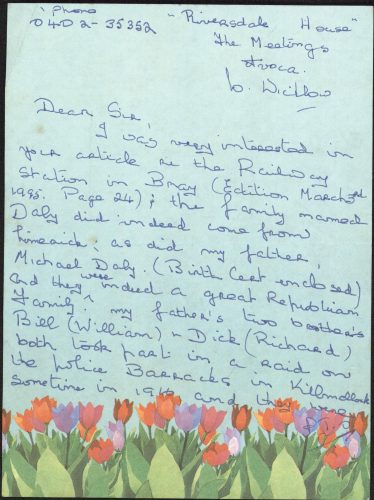 'Phone
0402-35352
"Riversdale House"
The Meetings
Avoca.
Co. Wicklow
Dear Sir,
I was very interested in
your article re the Railway
Station in Bray (Edition March 3rd
1995. Page 24); the family named
Daly did indeed come from
Limerick; as did my father,
Michael Daly. (Birth Cert enclosed)
And they were indeed a great Republican
Family; my father's two brothers
Bill (William) & Dick (Richard)
both took part in a raid on
the Police Barracks in Kilmallock
sometime in and they were